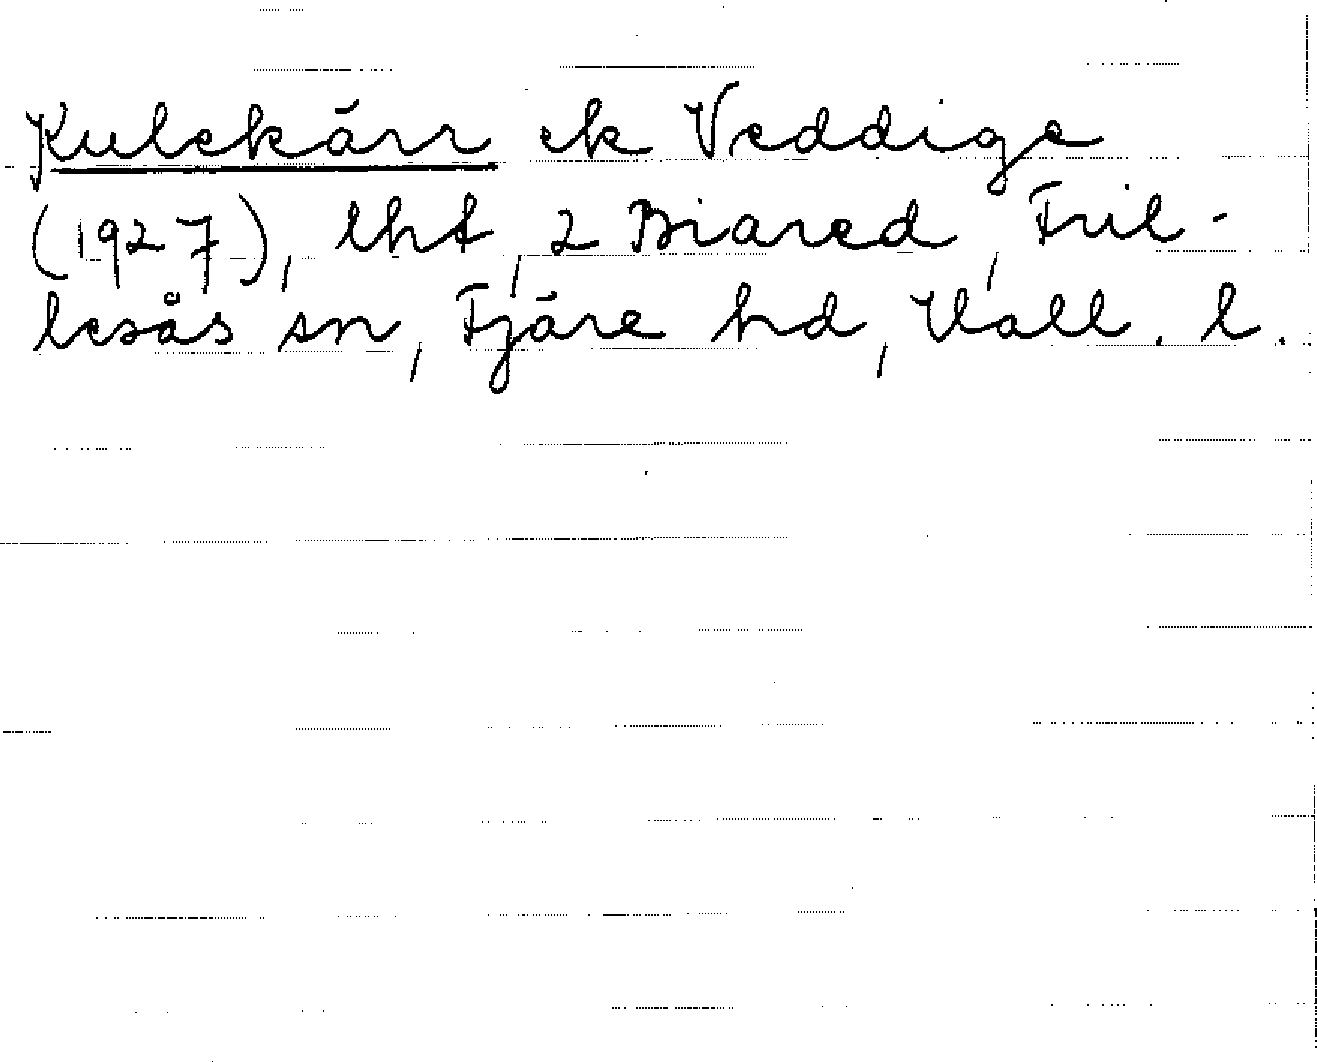 Kulekärr ek Veddige
(1927), lht, 2 Biared, Fril-
lesås sn, Fjäre hd, Hall. l.